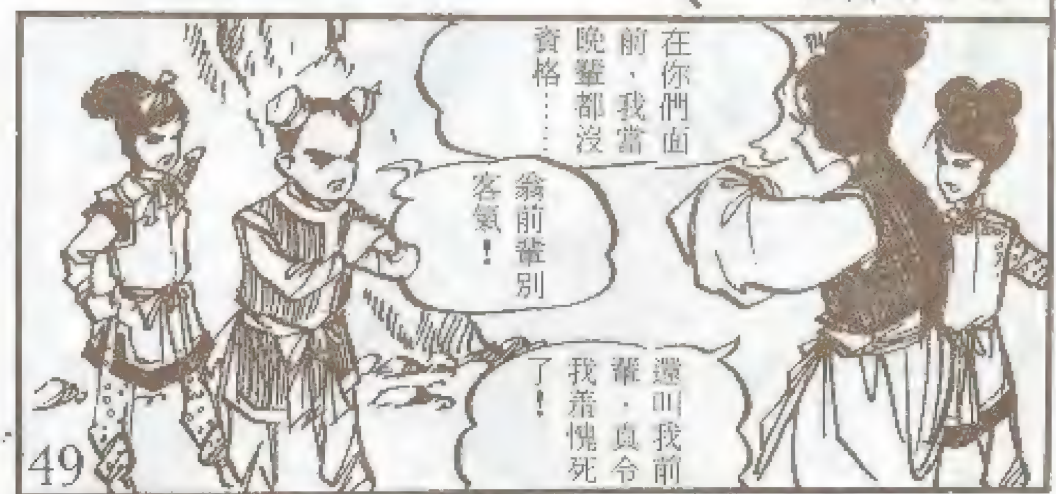 在你們面
前，我當
晚輩都沒
資格……
翁前輩別
客氣！
還叫我前
輩，真令
我羞愧死
了！
49